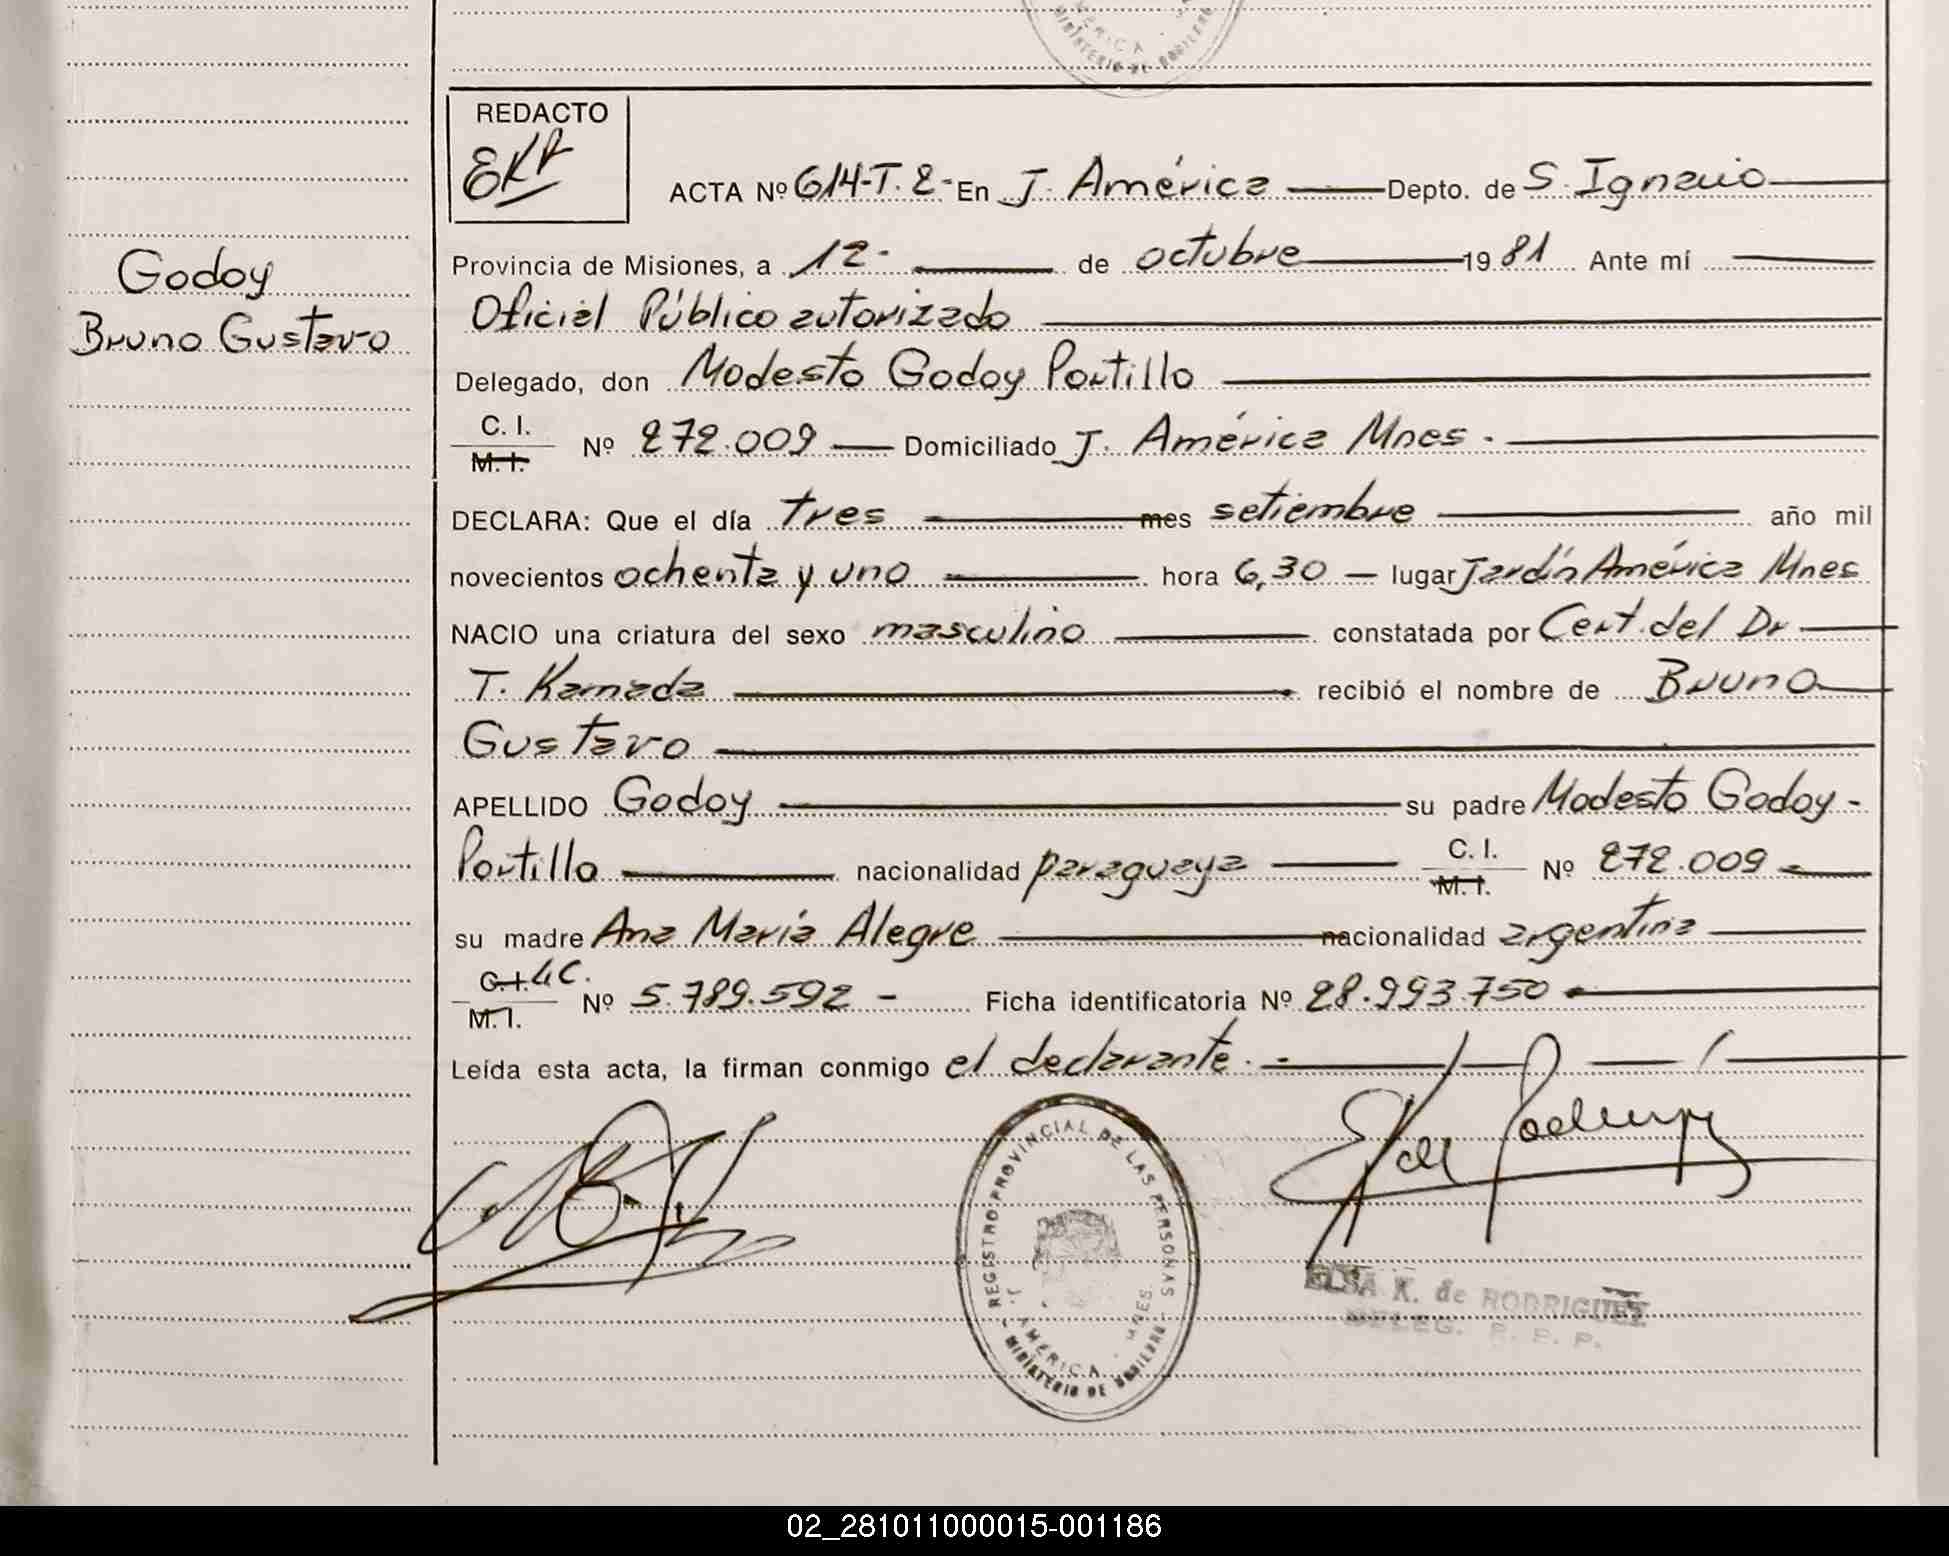 REDACTO
EKR
ACTA Nº 614-T. 2- En J. América Depto. de S. Ignacio
Godoy
Bruno Gustavo
Provincia de Misiones, a 12- de octubre 1981 Ante mí
Oficial Público autorizado
Delegado, don Modesto Godoy Portillo
C. I.
M. I.
Nº 272.009 — Domiciliado J. América Mnes.
DECLARA: Que el día tres mes setiembre año mil
novecientos ochenta y uno hora 6,30 — lugar Jardín América Mnes
NACIO una criatura del sexo masculino constatada por Cert. del Dr
T. Kamada recibió el nombre de Bruno
Gustavo
APELLIDO Godoy su padre Modesto Godoy -
Portillo nacionalidad paraguaya C. I. M. I. Nº 272.009
su madre Ana María Alegre nacionalidad argentina
C. I. L C.
M. I.
Nº 5.789.592 - Ficha identificatoria Nº 28.993.750
Leída esta acta, la firman conmigo el declarante.
REGISTRO PROVINCIAL DE LAS PERSONAS
J. AMÉRICA - MNES.
MINISTERIO DE GOBIERNO
ELSA K. de RODRIGUEZ
DELEG. R. P. P.
02_281011000015-001186